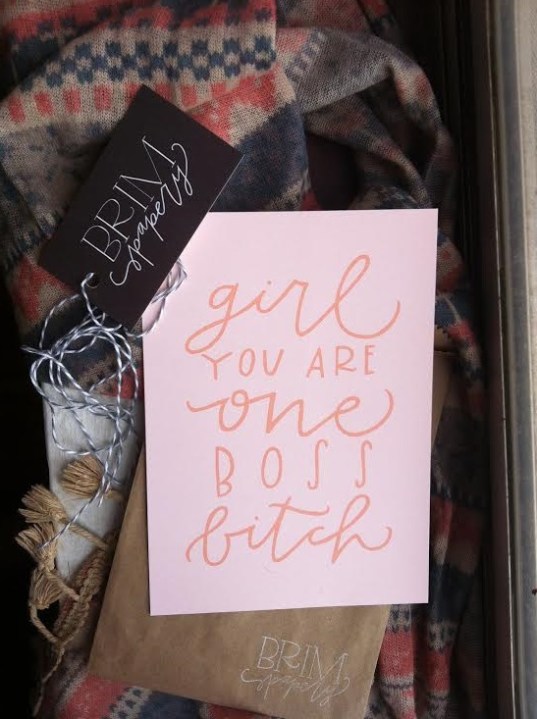 BRIM
papery
girl
YOU ARE
one
BOSS
bitch
BRIM
papery